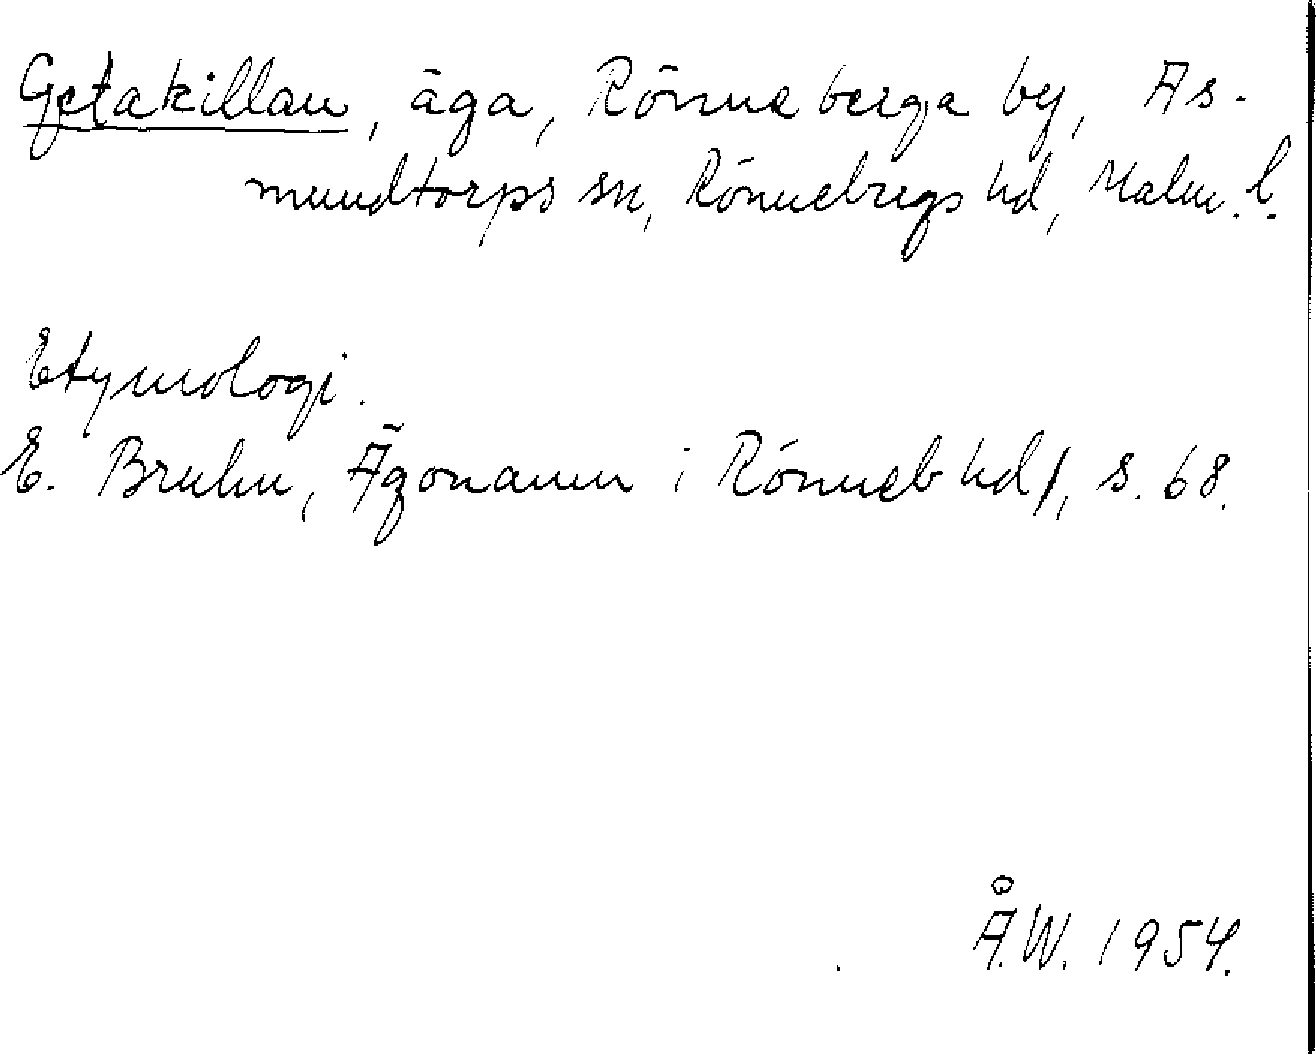 Getakillan, äga, Rönneberga by, As-
mundtorps sn, Rönnebergs hd, Malm. l.
Etymologi.
E. Bruhn, Ägonamn i Rönneb hd /, s. 68.
Å.W. 1954.